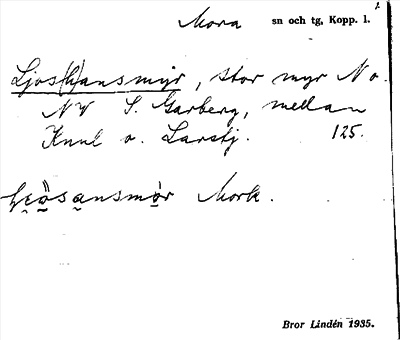 Mora sn och tg, Kopp. l.
Ljos(h)ansmyr, stor myr No.
NV S. Garberg, mellan
Knul o. Larstj. 125.
Mork.
Bror Lindén 1935.